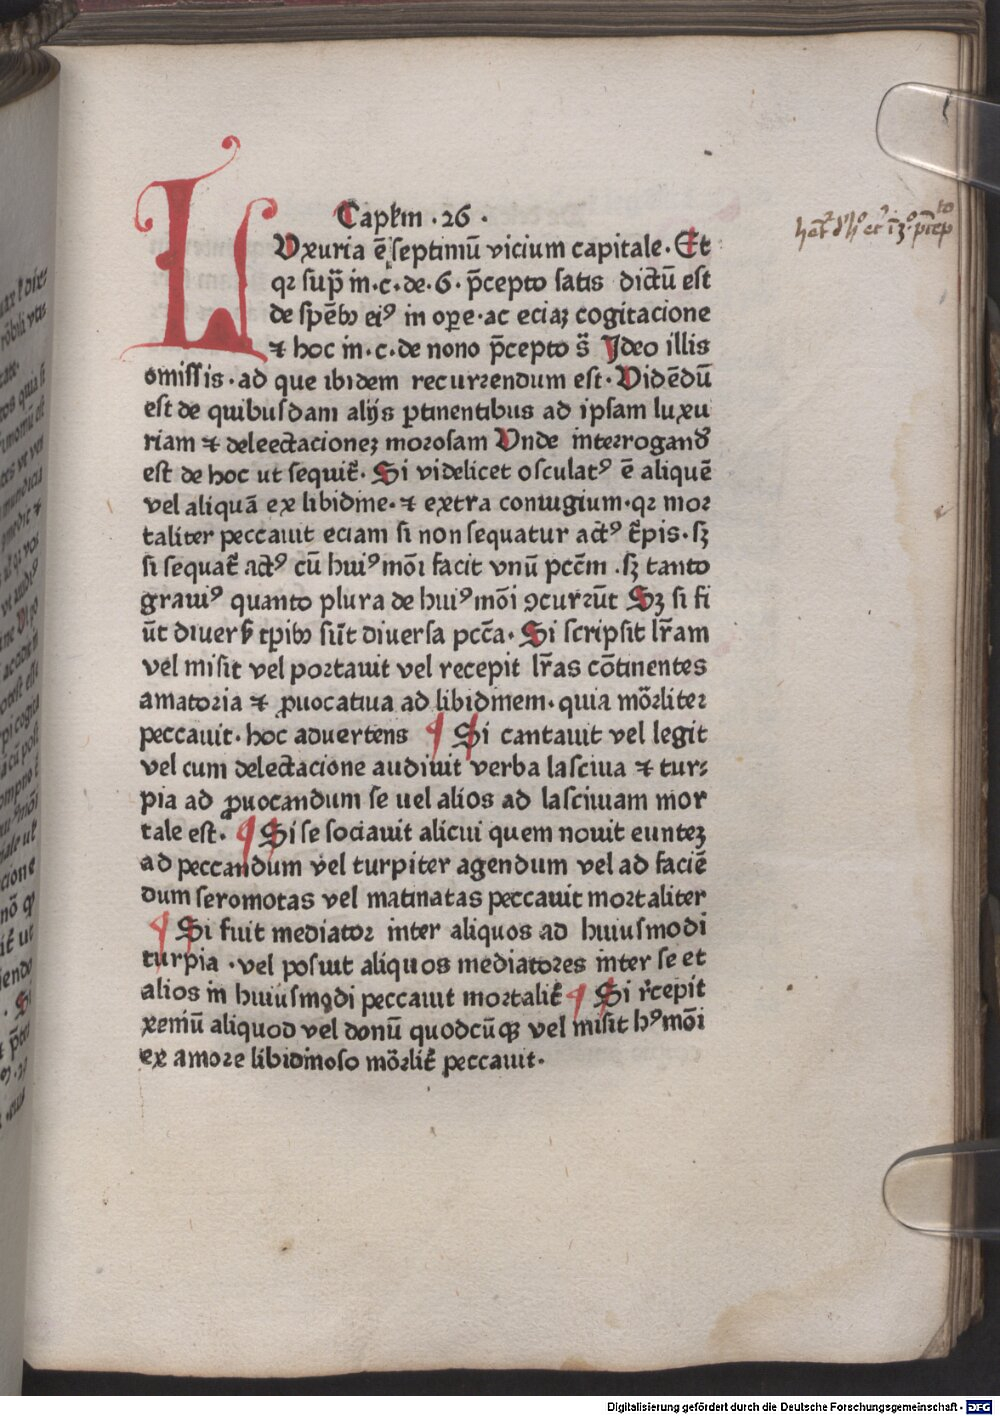 Capłm · 26 ·
LVxuria ē septimū vicium capitale · Et
qꝛ sup̄ in · c · de · 6 · p̄cepto satis dictū est
de spēbꝰ eiꝰ in oꝑe · ac eciaꝫ cogitacione
⁊ hoc in · c · de nono p̄cepto s̄ Ideo illis
omissis · ad que ibidem recurrendum est · Vidēdū
est de quibusdam alijs ꝑtinentibus ad ipsam luxu
riam ⁊ deleectacioneꝫ morosam Vnde interrogand
est de hoc ut sequit̄ · Si videlicet osculatꝰ ē aliquē
vel aliquā ex libidine · ⁊ extra coniugium · qꝛ mor
taliter peccauit eciam si non sequatur actꝰ t̄pis · sꝫ
si sequat̄ actꝰ cū huiꝰ mōi facit vnū pccm̄ · sꝫ tanto
grauiꝰ quanto plura de huiꝰ mōi ꝯcurrūt Sꝫ si fi
ūt diuers̄ tꝑibꝰ sūt diuersa pccā · Si scripsit lr̄am
vel misit vel portauit vel recepit lr̄as cōtinentes
amatoria ⁊ ꝓuocatiua ad libidinem · quia mōrliter
peccauit · hoc aduertens ¶ Si cantauit vel legit
vel cum delectacione audiuit verba lasciua ⁊ tur⸗
pia ad ꝓuocandum se uel alios ad lasciuiam mor
tale est · ¶ Si se sociauit alicui quem nouit eunteꝫ
ad peccandum vel turpiter agendum vel ad faciē
dum seromotas vel matinatas peccauit mortaliter
¶ Si fuit mediator inter aliquos ad huiusmodi
turpia · vel posuit aliquos mediatores inter se et
alios in huiusmodi peccauit mortalit̄ ¶ Si r̄cepit
xeniū aliquod vel donū quodcūqꝫ vel misit hꝰ mōi
ex amore libidinoso mōrlit̄ peccauit ·
Digitalisierung gefördert durch die Deutsche Forschungsgemeinschaft - DFG